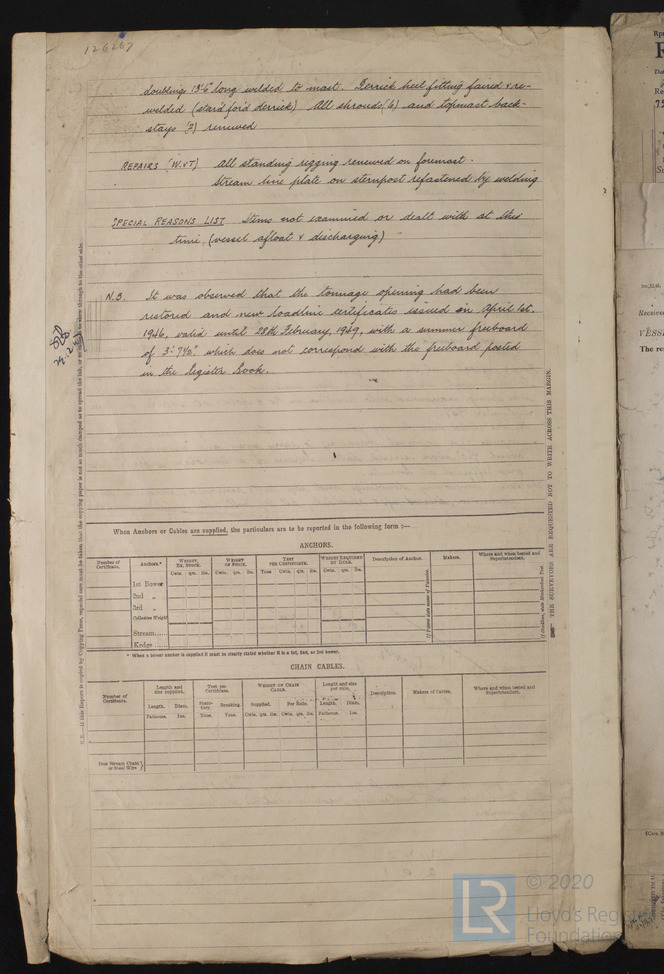 126267
doublings 13'6" long welded to mast. Derrick heel fitting faired & re-
welded (starb'd for'd derrick) All shrouds (6) and topmast back-
stays (2) renewed
REPAIRS (W.&T) All standing rigging renewed on foremast.
Stream line plate on sternpost refastened by welding
SPECIAL REASONS LIST Items not examined or dealt with at this
time (vessel afloat & discharging)
N.B. It was observed that the tonnage opening had been
restored and new loadline certificates issued on April 1st.
1946, valid until 28th February, 1949, with a summer freeboard
of 3'-7½" which does not correspond with the freeboard posted
in the Register Book.
When Anchors or Cables are supplied, the particulars are to be reported in the following form :—
ANCHORS.
Number of Certificate. Anchors.* WEIGHT, EX. STOCK. WEIGHT OF STOCK. TEST PER CERTIFICATE. WEIGHT REQUIRED BY RULE. Description of Anchor. Makers. Where and when tested and Superintendent.
Cwts. qrs. lbs. Cwts. qrs. lbs. Tons Cwts. qrs. lbs.
1st Bower
2nd "
3rd "
Collective Weight
Stream.....
Kedge.....
* When a bower anchor is supplied it must be clearly stated whether it is a 1st, 2nd, or 3rd bower.
CHAIN CABLES.
Number of Certificate. Length and size supplied. Test per Certificate. WEIGHT OF CHAIN CABLE. Length and size per rule. Description. Makers of Cables. Where and when tested and Superintendent.
Length. Diam. Statutory Breaking. Supplied. Per Rule. Length. Diam.
Fathoms. Ins. Tons. Tons. Cwts. qrs. lbs. Cwts. qrs. lbs. Fathoms. Ins.
Iron Stream Chain or Steel Wire }
THE SURVEYORS ARE REQUESTED NOT TO WRITE ACROSS THIS MARGIN.
Received
VESS
The re
LR
© 2020
Lloyd's Register
Foundation